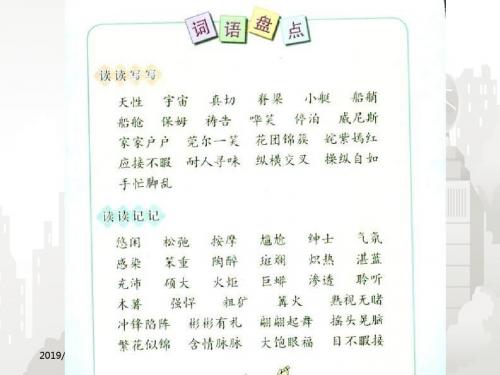 词语盘点
读读写写
天性 宇宙 真切 脊梁 小艇 船艄
船舱 保姆 祷告 哗笑 停泊 威尼斯
家家户户 莞尔一笑 花团锦簇 姹紫嫣红
应接不暇 耐人寻味 纵横交叉 操纵自如
手忙脚乱
读读记记
悠闲 松弛 按摩 尴尬 绅士 气氛
感染 笨重 陶醉 斑斓 炽热 湛蓝
充沛 硕大 火炬 巨蟒 渗透 聆听
木薯 强悍 粗犷 篝火 熟视无睹
冲锋陷阵 彬彬有礼 翩翩起舞 摇头晃脑
繁花似锦 含情脉脉 大饱眼福 目不暇接
2019/